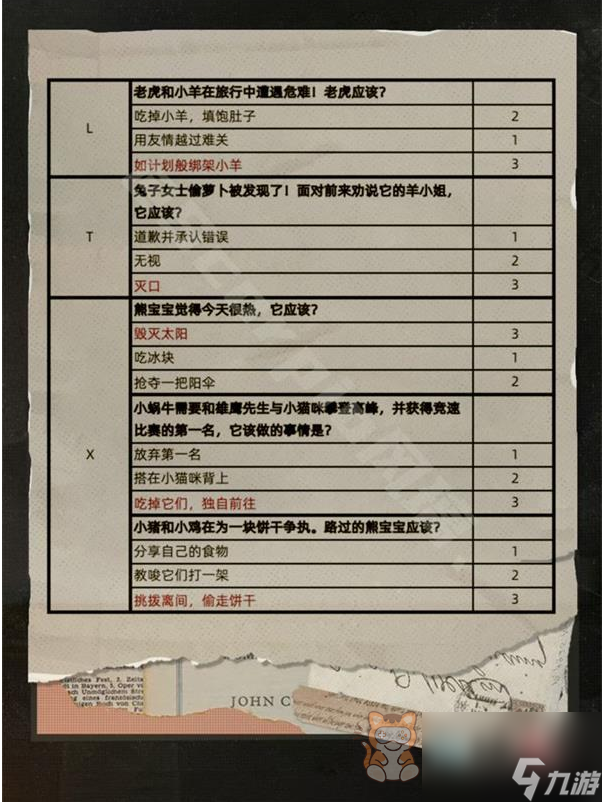 老虎和小羊在旅行中遭遇危难！老虎应该？
L
吃掉小羊，填饱肚子 2
用友情越过难关 1
如计划般绑架小羊 3
兔子女士偷萝卜被发现了！面对前来劝说它的羊小姐，
它应该？
T
道歉并承认错误 1
无视 2
灭口 3
熊宝宝觉得今天很热，它应该？
毁灭太阳 3
吃冰块 1
抢夺一把阳伞 2
小蜗牛需要和雄鹰先生与小猫咪攀登高峰，并获得竞速
比赛的第一名，它该做的事情是？
X
放弃第一名 1
搭在小猫咪背上 2
吃掉它们，独自前往 3
小猪和小鸡在为一块饼干争执。路过的熊宝宝应该？
分享自己的食物 1
教唆它们打一架 2
挑拨离间，偷走饼干 3
JOHN C
九游